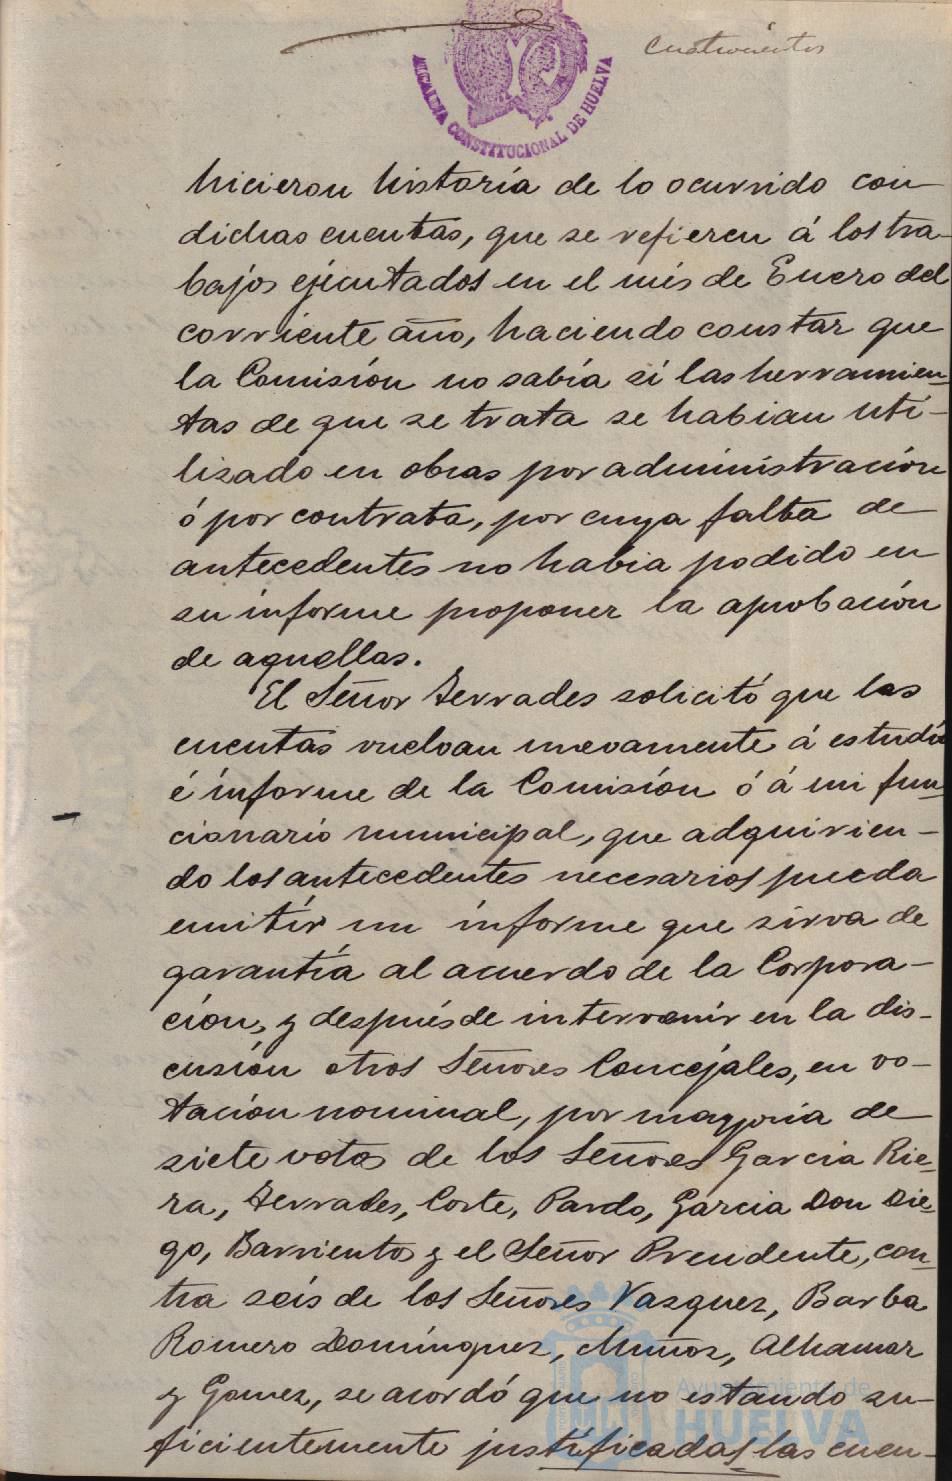 cuatrocientos
ALCALDIA CONSTITUCIONAL DE HUELVA
hicieron historia de lo ocurrido con
dichas cuentas, que se refieren á los tra-
bajos ejecutados en el més de Enero del
corriente año, haciendo constar que
la Comisión no sabía si las herramien-
tas de que se trata se habian uti-
lizado en obras por administración
ó por contrata, por cuya falta de
antecedentes no habia podido en
su informe proponer la aprobación
de aquellas.
El Señor Terrades solicitó que las
cuentas vuelvan nuevamente á estudio
é informe de la Comisión ó á un fun-
cionario municipal, que adquirien-
do los antecedentes necesarios pueda
emitir un informe que sirva de
garantía al acuerdo de la Corpora-
ción, y después de intervenir en la dis-
cusión otros Señores Concejales, en vo-
tación nominal, por mayoria de
siete votos de los Señores Garcia Rie-
ra, Terrades, Corte, Pardo, Garcia Don Die-
go, Barrientos y el Señor Presidente, con-
tra seis de los Señores Vazquez, Barba
Romero Domínguez, Muñoz, Alhamar
y Gomez, se acordó que no estando su-
ficientemente justificadas las cuen-
Ayuntamiento de
HUELVA